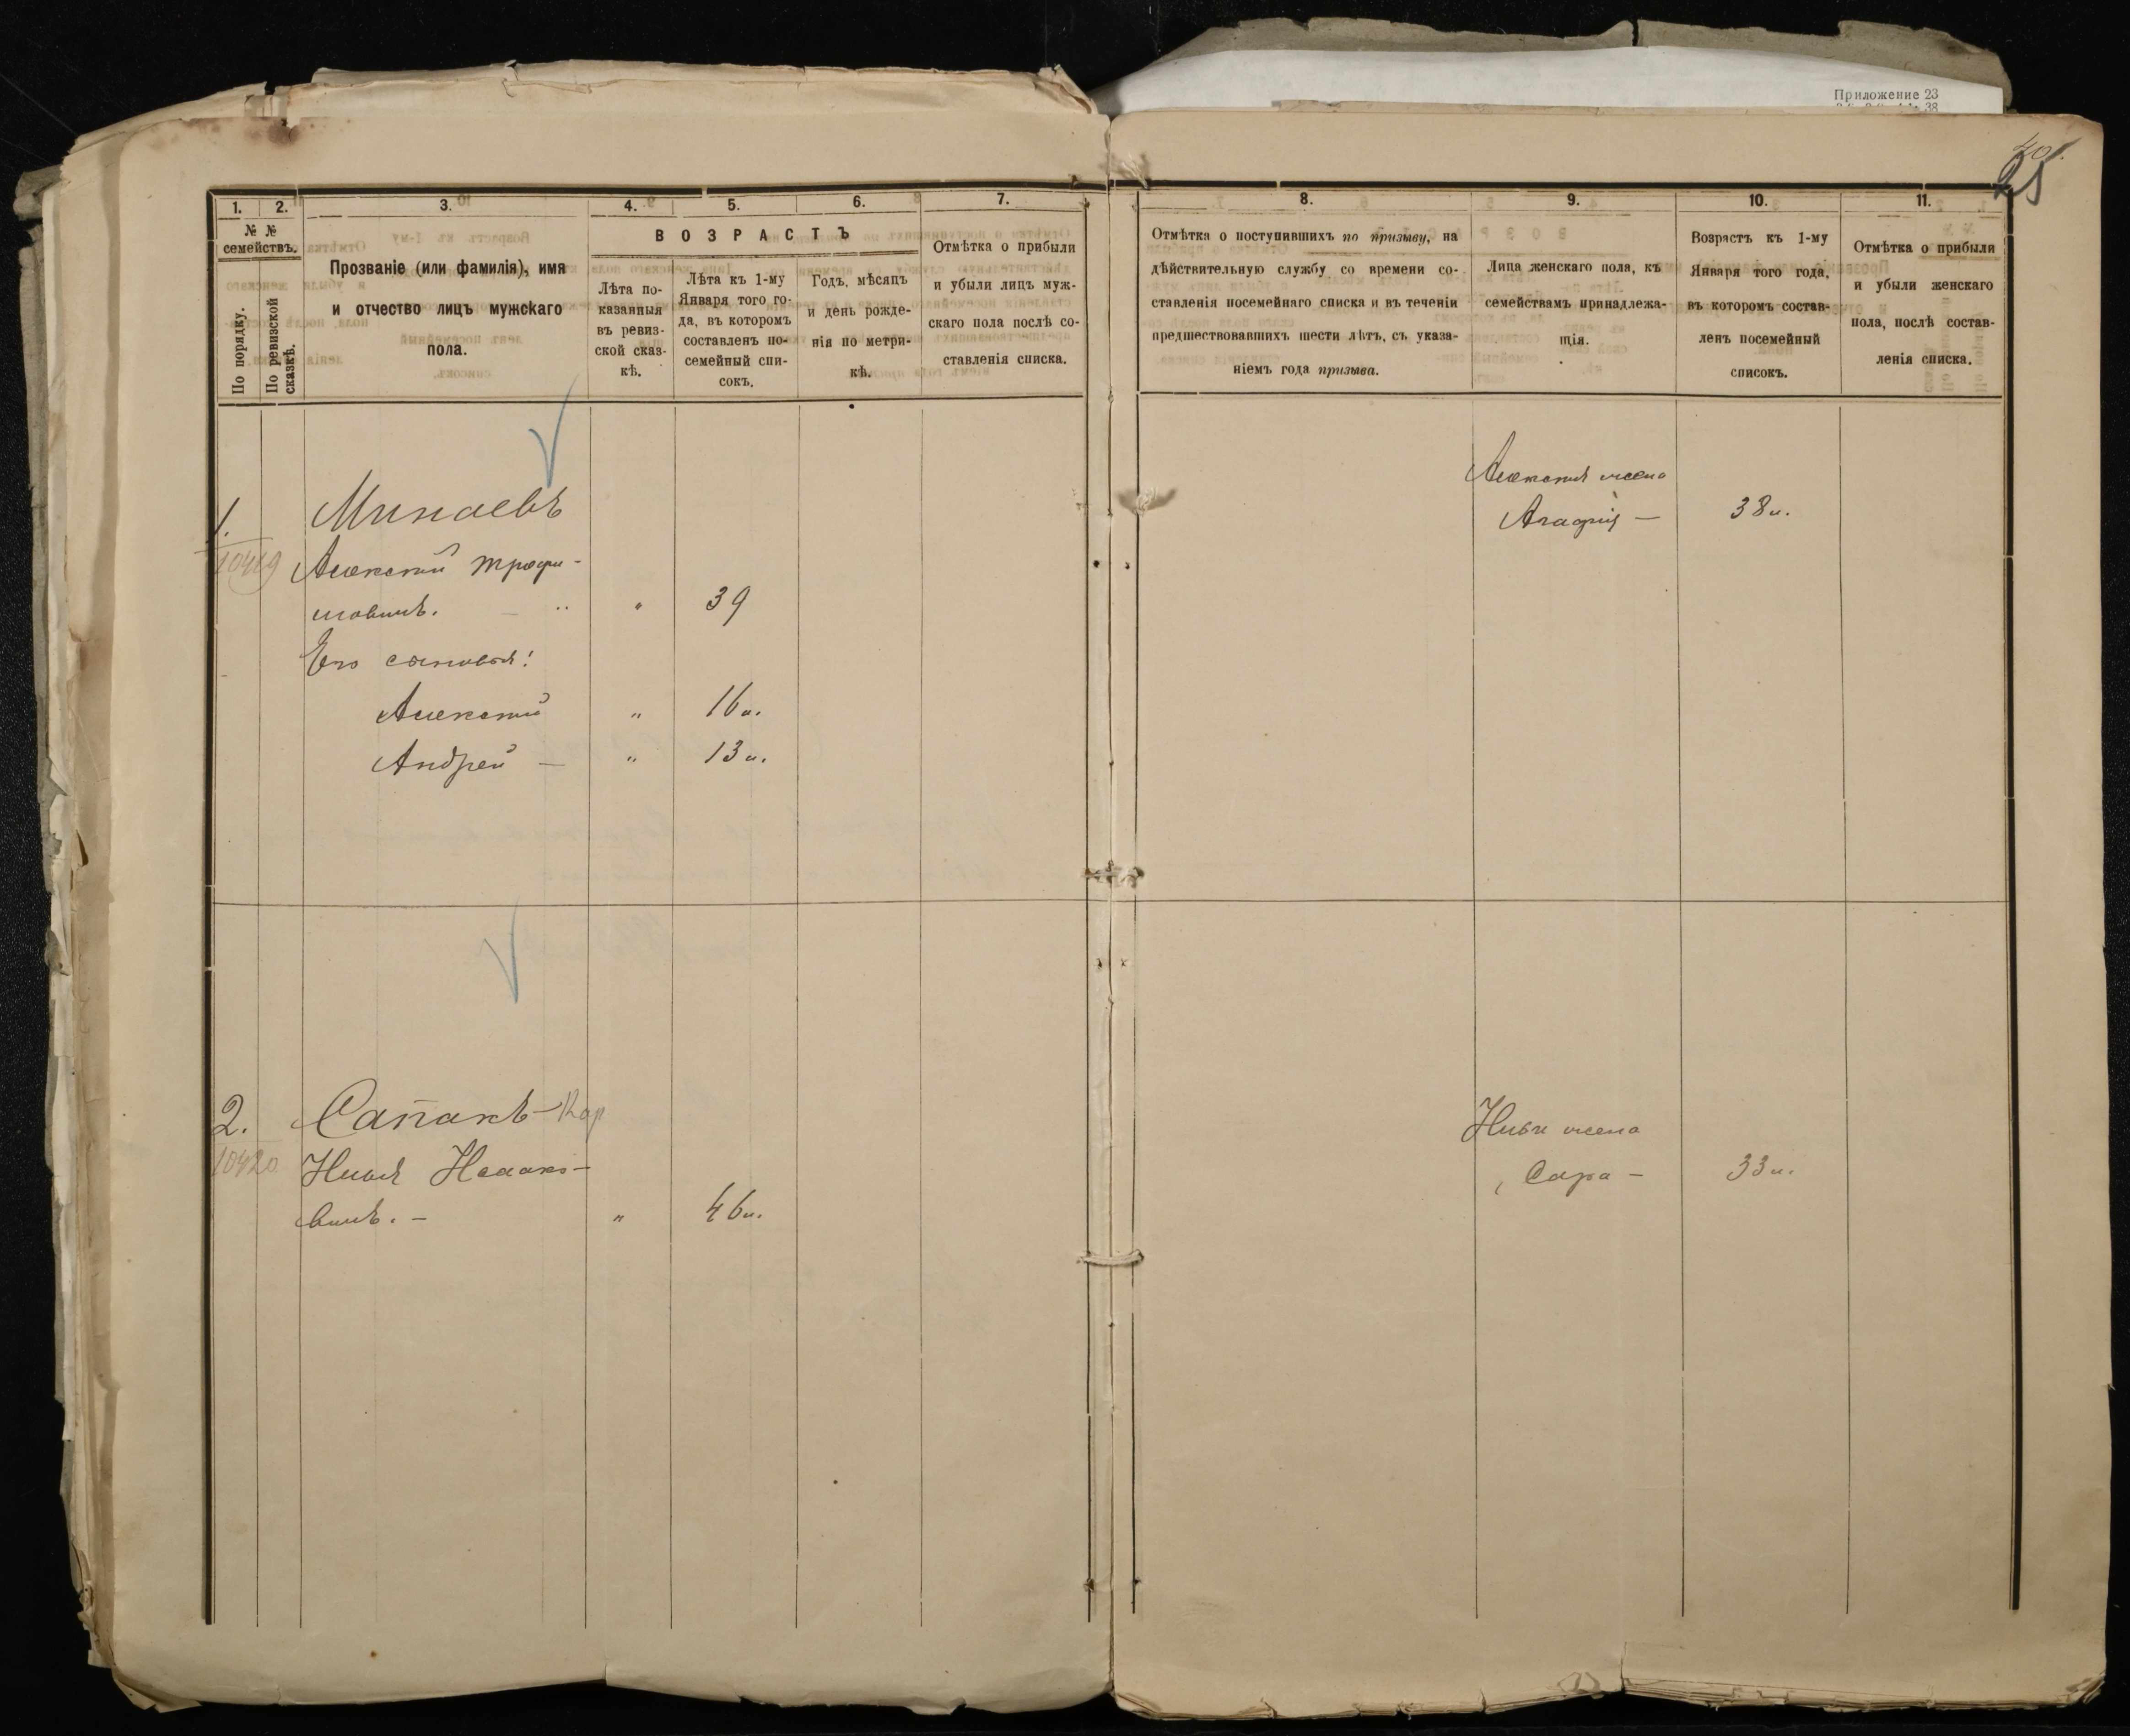 Приложение 23
25
1.
2.
3.
4.
5.
6.
7.
№ №
семействъ.
По порядку.
По ревизской сказкѣ.
Прозваніе (или фамилія), имя
и отчество лицъ мужскаго
пола.
ВОЗРАСТЪ
Лѣта по-
казанныя
въ ревиз-
ской сказ-
кѣ.
Лѣта къ 1-му
Января того го-
да, въ которомъ
составленъ по-
семейный спи-
сокъ.
Годъ, мѣсяцъ
и день рожде-
нія по метри-
кѣ.
Отмѣтка о прибыли
и убыли лицъ муж-
скаго пола послѣ со-
ставленія списка.
8.
9.
10.
11.
Отмѣтка о поступившихъ по призыву, на
дѣйствительную службу со времени со-
ставленія посемейнаго списка и въ теченіи
предшествовавшихъ шести лѣтъ, съ указа-
ніемъ года призыва.
Лица женскаго пола, къ
семействамъ принадлежа-
щія.
Возрастъ къ 1-му
Января того года,
въ которомъ состав-
ленъ посемейный
списокъ.
Отмѣтка о прибыли
и убыли женскаго
пола, послѣ состав-
ленія списка.
1.
Минаевъ
10419
Алексѣй Трофи-
мовичъ. " 39
Его сыновья:
Алексѣй " 16 л.
Андрей — " 13 л.
Алексѣя жена
Агафія — 38 л.
2.
Сапакъ-Кар
10420
Нисья Исаако-
вичъ. — " 46 л.
жена
Сара — 33 л.